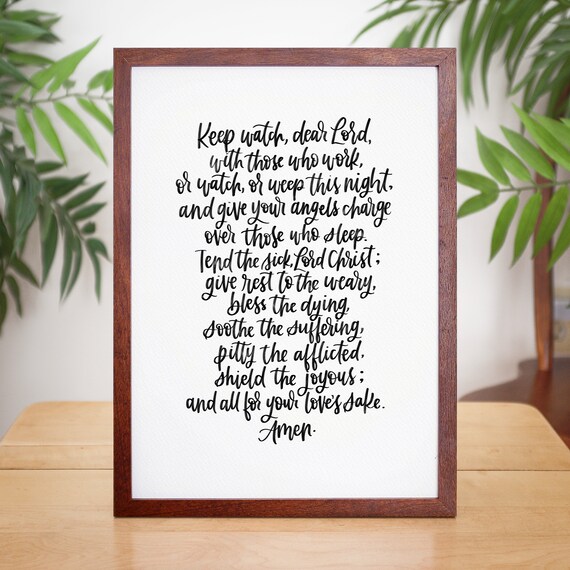 Keep watch, dear Lord,
with those who work,
or watch, or weep this night,
and give your angels charge
over those who sleep.
Tend the sick, Lord Christ;
give rest to the weary,
bless the dying,
soothe the suffering,
pitty the afflicted,
shield the joyous;
and all for your love's sake.
Amen.